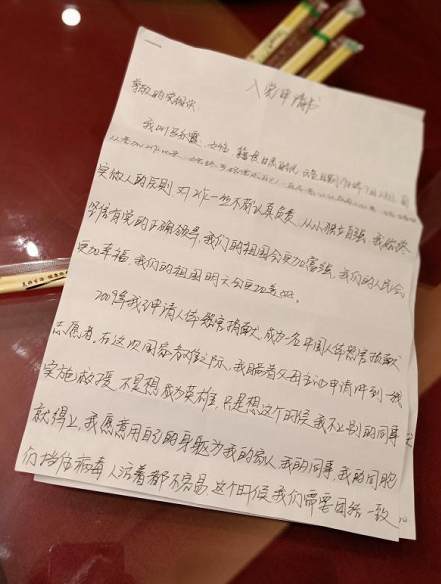 入党申请书
尊敬的党组织
我叫 女性 籍贯甘肃
实做人的原则 对工作一丝不苟认真负责,从小独立自强,我始终
坚信有党的正确领导,我们的祖国会更加富强,我们的人民会
更加幸福,我们的祖国明天会更加美好。
2009年我 申请人体器官捐献,成为一名中国人体器官捐献
志愿者。在这次国家者难之际,我瞒着父母主动申请 到一线
实施救援,不是想成为英雄,只是想这个时候我不上别的同事 也
就得上,我愿意用自己的身躯为我的家人,我的同事,我的同胞
们挡住病毒 人活着都不容易,这个时候我们需要团结一致,